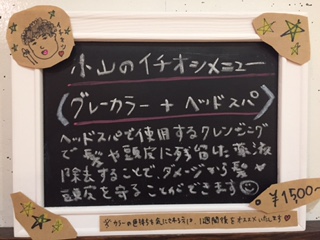 小山のイチオシメニュー
グレーカラー + ヘッドスパ
ヘッドスパで使用するクレンジング
で髪や頭皮に残留した薬液
除去することで、ダメージから髪や
頭皮を守ることができます
¥1,500〜
カラーの色持ちを気にされる方は、1週間後をオススメいたします